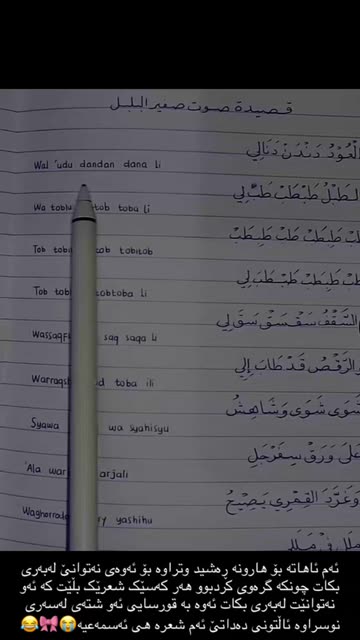 قصيدة صوت صفير البلبل
الْعُوْدُ دَنْدَنْ دَنَا لِي
Wal 'udu dandan dana li
الطَّبْلُ طَبْطَبْ طَبَّ لِي
Wa tob tob toba li
طَبْ طَبِطَبْ طَبْ طَبِطَبْ
Tob tob tobitob
طَبْ طَبِطَبْ طَبْطَبَ لِي
Tob tob tobtoba li
السَّقْفُ سَقْسَقْ سَقَ لِي
saq saqa li
والرَّقْصُ قَدْ طَابَ إِلِي
Warraqs toba ili
شَوَى شَوَى وَشَاهِشُ
Syawa wa syahisyu
عَلَى وَرَقْ سِفَرْجَلِ
'Ala war arjali
وَغَرَّدَ القِمْرِي يَصِيْحُ
yashihu
ئەم ئاهاتە بۆ هارونە ڕەشید وتراوە بۆ ئەوەی نەتوانێ لەبەری
بکات چونکە گرەوی کردبوو هەر کەسێک شعرێک بڵێت کە ئەو
نەتوانێت لەبەری بکات ئەوە بە قورسایی ئەو شتەی لەسەری
نوسراوە ئاڵتونی دەداتێ ئەم شعرە هی ئەسمەعیە😭🎀😂